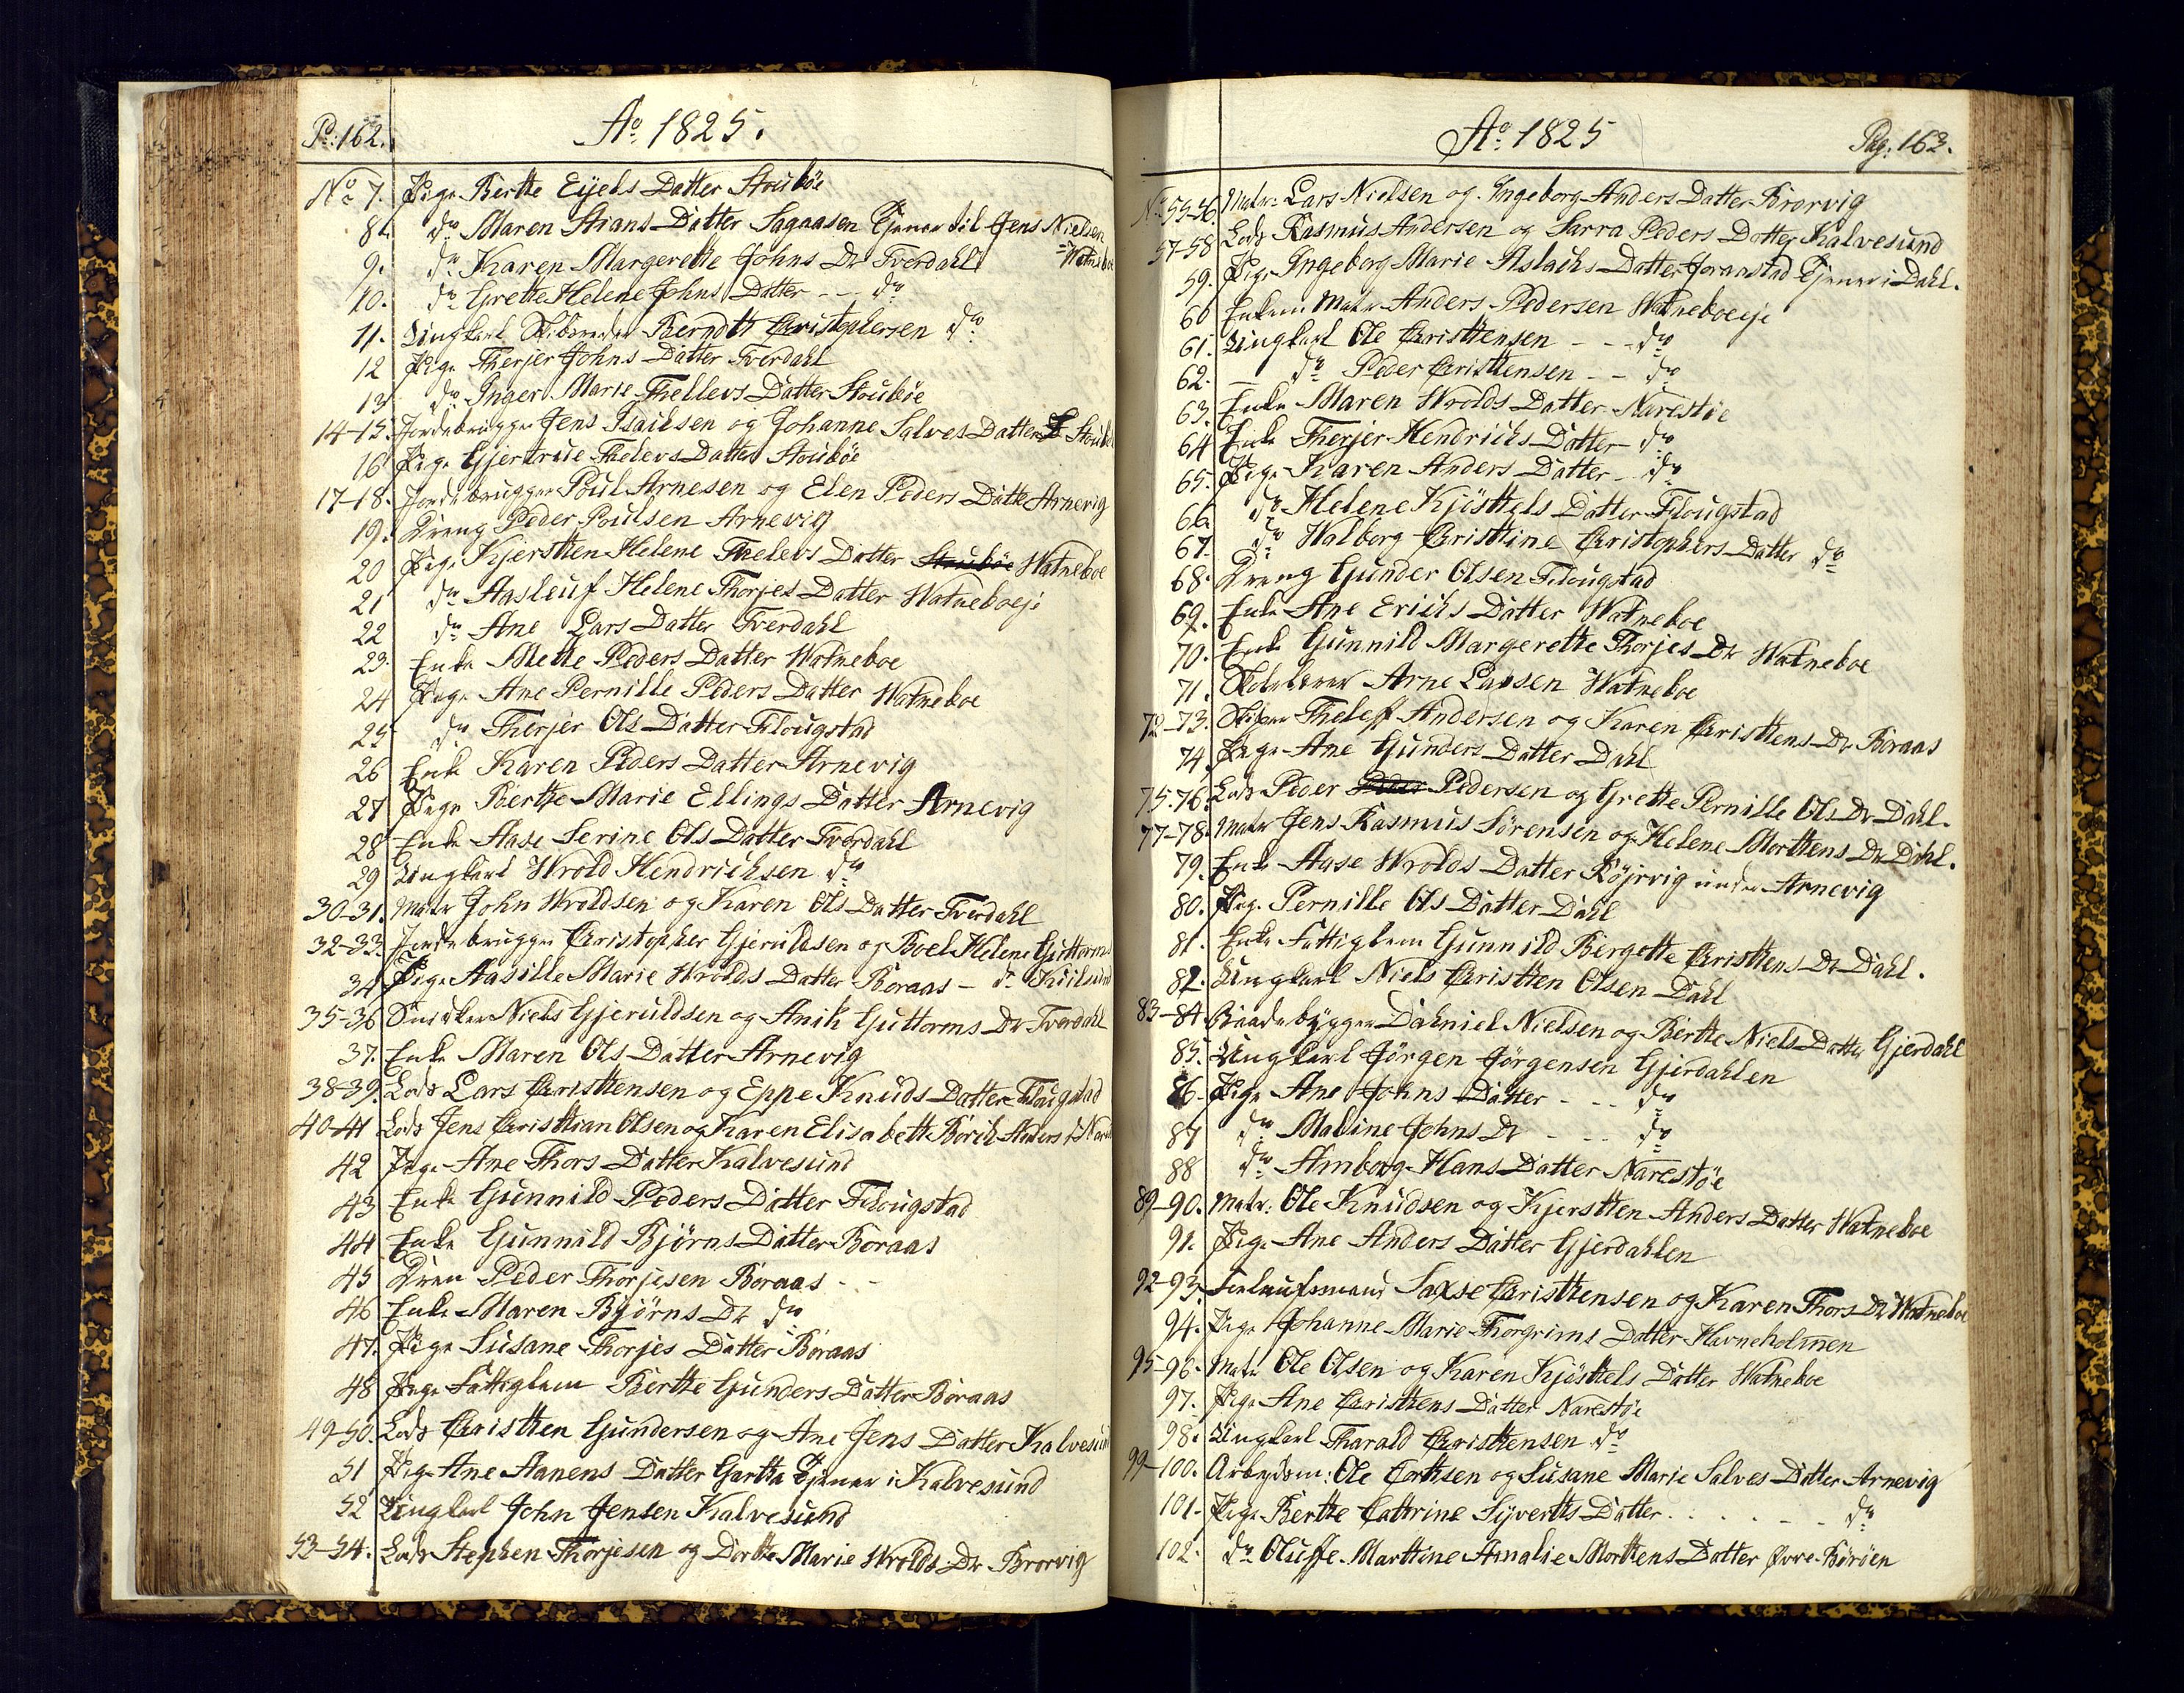 Pa: 162.
Ao 1825.
No 7. Pige Berthe Eyels Datter Stoubøe
8. do Maren Stians Datter Sagaasen Tjener til Jens Nielsen
= Watneboe
9. do Karen Margerethe Johns Dr Tverdahl
10. do Grethe Helene Johns Datter - - do
11. Ungkarl Berndth Christophersen do
12 Pige Therjer Johns Datter Tverdahl
13 do Inger Marie Thellevs Datter Stoubøe
14-15. Jordebruger Jens Isaiksen og Johanne Salves Datter Stoub
16 Pige Gjertrue Tholevs Datter Stoubøe
17-18. Jordebruger Poul Arnesen og Elen Peders Datter Arnevig
19. Dreng Peder Poulsen Arnevig
20 Pige Kjersthen Helene Thelevs Datter Stoubøe Watneboe
21 do Aasleuf Helene Thorjes Datter Watneboeje
22 do Ane Lars Datter Tverdahl
23. Enke Mette Peders Datter Watneboe
24 Pige Ane Pernille Peders Datter Watneboe
25 do Therjer Ols Datter Flougstad
26 Enke Karen Peders Datter Arnevig
27 Pige Berthe Marie Ellings Datter Arnevig
28 Enke Aase Serine Ols Datter Tverdahl
29 Ungkarl Wrold Hendrichsen do
30-31. Matr John Wroldsen og Karen Ols Datter Tverdahl
32-33 Jordebruger Christopher Gjeruldsen og Boel Helene Guttorms
34 Pige Aasille Marie Wrolds Datter Boraas - d. Kuilsund
35-36 Snedker Niels Gjeruldsen og Anik Guttorms Dr Tverdahl
37. Enke Maren Ols Datter Arnevig
38-39. Lods Lars Christhensen og Eppe Knuds Datter Flougstad
40-41 Lods Jens Christhian Olsen og Karen Elisabeth Borch Anders
42 Pige Ane Thors Datter Kalvesund
43 Enke Gunnild Peders Datter Flougstad
44 Enke Gunnild Bjørns Datter Boraas
45 Dren Peder Thorjesen Boraas - -
46 Enke Maren Bjørns Dr do
47. Pige Susane Thorjes Datter Boraas
48 Pige Fattiglem Berthe Gunders Datter Boraas
49-50. Lods Christhen Gundersen og Ane Jens Datter Kalvesund
51 Pige Ane Aanens Datter Gartha Tjener i Kalvesund
52 Ungkarl John Jensen Kalvesund
53-54. Lods Stephen Thorjesen og Dorthe Marie Wrolds Dr Brorvig
Ao 1825
Pag: 163.
No 55-56. Matr: Lars Nielsen og Ingeborg Anders Datter Brorvig
57-58 Lods Rasmus Andersen og Sarra Peders Datter Kalvesund
59. Pige Ingeborg Marie Aslachs Datter Joranstad Tjener i Dahl.
60 Enkem: Matr Anders Pedersen Watneboeeje
61. Ungkarl Ole Christhensen - - - do
62. - do Peder Christhensen - - do
63. Enke Maren Wrolds Datter Narestøe
64 Enke Therjer Hendrichs Datter - do
65. Pige Karen Anders Datter - do
66 do Helene Kjösthels Datter Flougstad
67. do Walborg Christhine Christophers Datter do
68. Dreng Gunder Olsen Flougstad
69. Enke Ane Erichs Datter Watneboe
70. Enke Gunnild Margerethe Thorjes Dr Watneboe
71. Skolelærer Arne Larsen Watneboe
72-73. Skipper Theleff Andersen og Karen Christhens Dr Boraas
74 Pige Ane Gunders Datter Dahl
75-76. Lods Peder Peder Pedersen og Grethe Pernille Ols Dr Dahl.
77-78. Matr Jens Rasmus Sörensen og Helene Morthens Dr Dahl.
79. Enke Aase Wrolds Datter Röjrvig under Arnevig
80. Pige Pernille Ols Datter Dahl
81. Enke Fattiglem Gunnild Bergethe Christhens Dr Dahl.
82. Ungkarl Niels Christhen Olsen Dahl
83-84 Baadebygger Dahniel Nielsen og Berthe Niels Datter Gjerdahl
85. Ungkarl Jørgen Jørgensen Gjerdahlen
86. Pige Ane Johns Datter - - - do
87 do Maline Johns Dr - - - do
88 do Amborg Hans Datter Narestøe
89-90. Matr: Ole Knudsen og Kjersthen Anders Datter Watneboe
91. Pige Ane Anders Datter Gjerdahlen
92-93. Saxse Christhensen og Karen Thors Dr Watneboe
94. Pige Johanne Marie Thorgrims Datter Havneholmen
95-96. Matr Ole Olsen og Karen Kjösthels Datter Watneboe
97. Pige Ane Christhens Datter Narestøe
98. Ungkarl Tharald Christhensen do
99-100. Arbejdsm: Ole Corthsen og Susane Marie Salves Datter Arnevig
101. Pige Berthe Cathrine Syverts Datter . . . . . . do
102. do Oluffe Marthine Amalie Morthens Datter Øvre Börøen